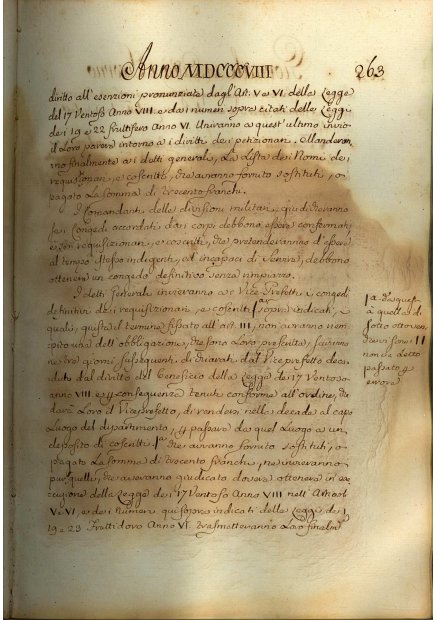 Anno MDCCCVIII 263
diritto all'esenzioni pronunziate dagl'Art: V e VI della Legge
del 17 Ventoso Anno VIII e dai numeri sopra citati della Legge
dei 19 e 22 fruttifero Anno VI. Univanno a quest'ultimo invio
il Loro parere intorno a i diritti dei petizionari, e Manderan
nno finalmente a i detti generali, La Lista dei Nomi dei
requisizionari, e coscritti, che avranno fornito sostituti, o
pagato La somma di trecento franchi.
I Comandanti delle divisioni militari, giudicheranno
se i Congedi accordati dai corpi debbono essere confermati,
e se i requisizionari, e coscritti, che pretenderanno d'essere
al tempo stesso indigenti, ed incapaci di servire, debbono
ottenere un congedo definitivo senza rimpiazzo.
I detti Generali invieranno a i Vice-Prefetti i congedi
definitivi dei requisizionari, e coscritti sopra indicati, i
quali, giusta il termine fissato all'art. III, non avranno riem
pito una dell'obbligazioni, che sono Loro prescritte, saranno
nei tre giorni susseguenti dichiarati dal Vice prefetto deca
duti dal diritto del beneficio della Legge dei 17 Ventoso
anno VIII e conseguenza tenuti conforme all'ordine, che
darà Loro il Viceprefetto, di rendersi nella decade al capo
Luogo del dipartimento, passare da quel Luogo a un
deposito di coscritti che avranno fornito sostituti, o
pagato La somma di trecento franchi, ne riceveranno
pur quelli, che avranno giudicato doversi ottenere in ese
cuzione della Legge dei 17 Ventoso Anno VIII nell'Articoli
V e VI, e dei Numeri qui sopra indicati della Legge dei
19 = 23 Fruttidoro Anno VI. Trasmetteranno Loro finalm
1a. Da questa
a quella di
sotto
11
non è detto
passato
errore